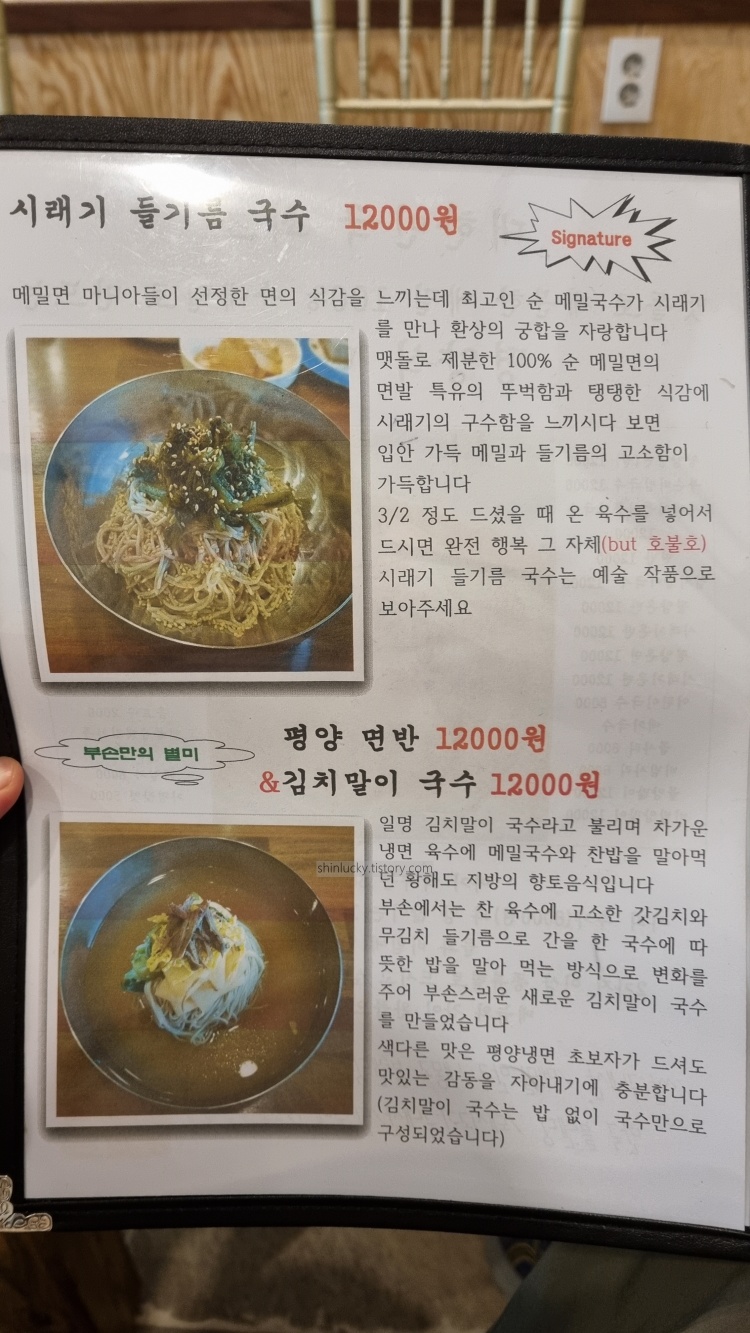 시래기 들기름 국수 12000원
Signature
메밀면 마니아들이 선정한 면의 식감을 느끼는데 최고인 순 메밀국수가 시래기
를 만나 환상의 궁합을 자랑합니다
맷돌로 제분한 100% 순 메밀면의
면발 특유의 뚜벅함과 탱탱한 식감에
시래기의 구수함을 느끼시다 보면
입안 가득 메밀과 들기름의 고소함이
가득합니다
3/2 정도 드셨을 때 온 육수를 넣어서
드시면 완전 행복 그 자체(but 호불호)
시래기 들기름 국수는 예술 작품으로
보아주세요
부손만의 별미
평양 면반 12000원
&김치말이 국수 12000원
일명 김치말이 국수라고 불리며 차가운
냉면 육수에 메밀국수와 찬밥을 말아먹
던 황해도 지방의 향토음식입니다
부손에서는 찬 육수에 고소한 갓김치와
무김치 들기름으로 간을 한 국수에 따
뜻한 밥을 말아 먹는 방식으로 변화를
주어 부손스러운 새로운 김치말이 국수
를 만들었습니다
색다른 맛은 평양냉면 초보자가 드셔도
맛있는 감동을 자아내기에 충분합니다
(김치말이 국수는 밥 없이 국수만으로
구성되었습니다)
shinlucky.tistory.com